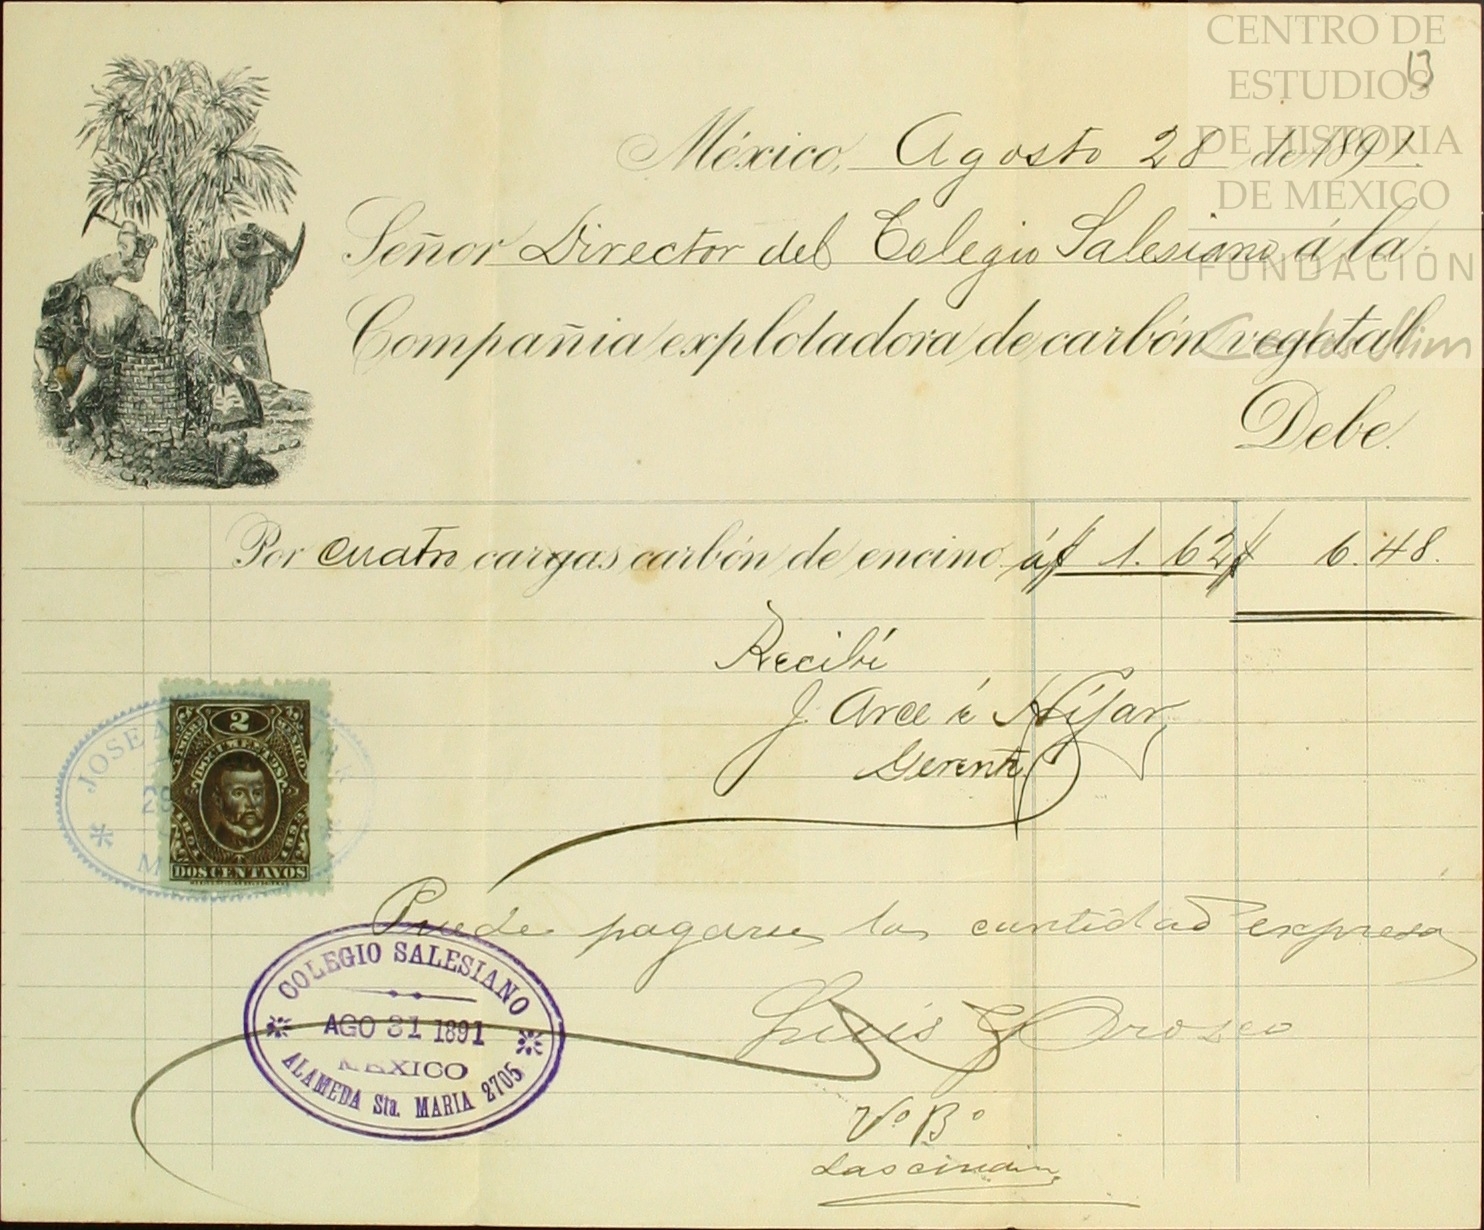 CENTRO DE
ESTUDIOS
DE HISTORIA
DE MÉXICO
FUNDACIÓN
Carlos Slim
13
México, Agosto 28 de 1891.
Señor Director del Colegio Salesiano á la
Compañia explotadora de carbón vegetal
Debe.
Por cuatro cargas carbón de encino á $ 1.62 $ 6.48.
Recibí
J. Arce é Híjar
Gerente
2
DOCUMENTOS
MEXICO
DOS CENTAVOS
JOSE A
Puede pagarse la cantidad expresa
Luis G Orozco
COLEGIO SALESIANO
AGO 31 1891
MEXICO
ALAMEDA Sta. MARIA 2705
Vo. Bo.